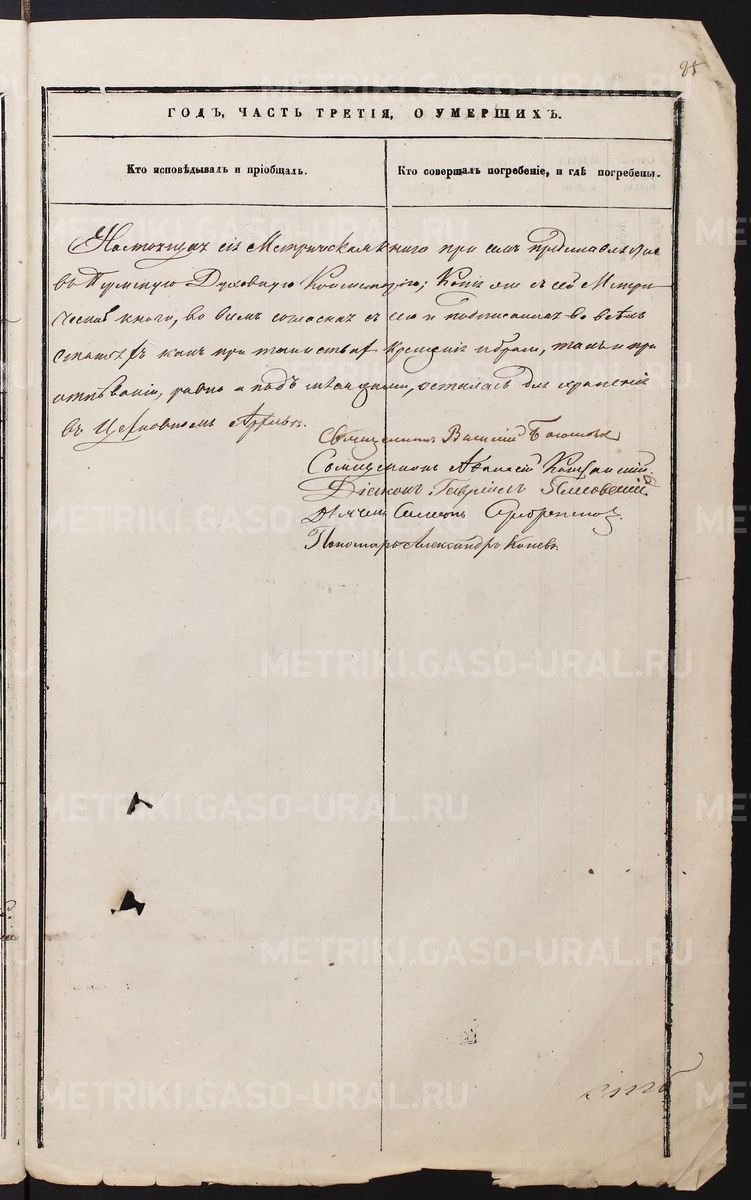 85
ГОДЪ, ЧАСТЬ ТРЕТІЯ, О УМЕРШИХЪ.
Кто исповѣдывалъ и пріобщалъ.
Кто совершалъ погребеніе, и гдѣ погребены.
Настоящая сія Метрическая книга при семъ представляется
въ Пермскую Духовную Консисторію; Копія же съ сей Метри
ческой книги, во всемъ согласная съ сею и подписанная во всѣхъ
статьяхъ какъ при таинствахъ крещенія и брака, такъ и при
отпѣваніи, равно и подъ мѣсяцами, осталась для храненія
въ Церковномъ Архивѣ.
Священникъ Василій
Священникъ
Діаконъ Гавріилъ
Дьячекъ Симеонъ
Пономарь Александръ Коневъ.
METRIKI.GASO-URAL.RU